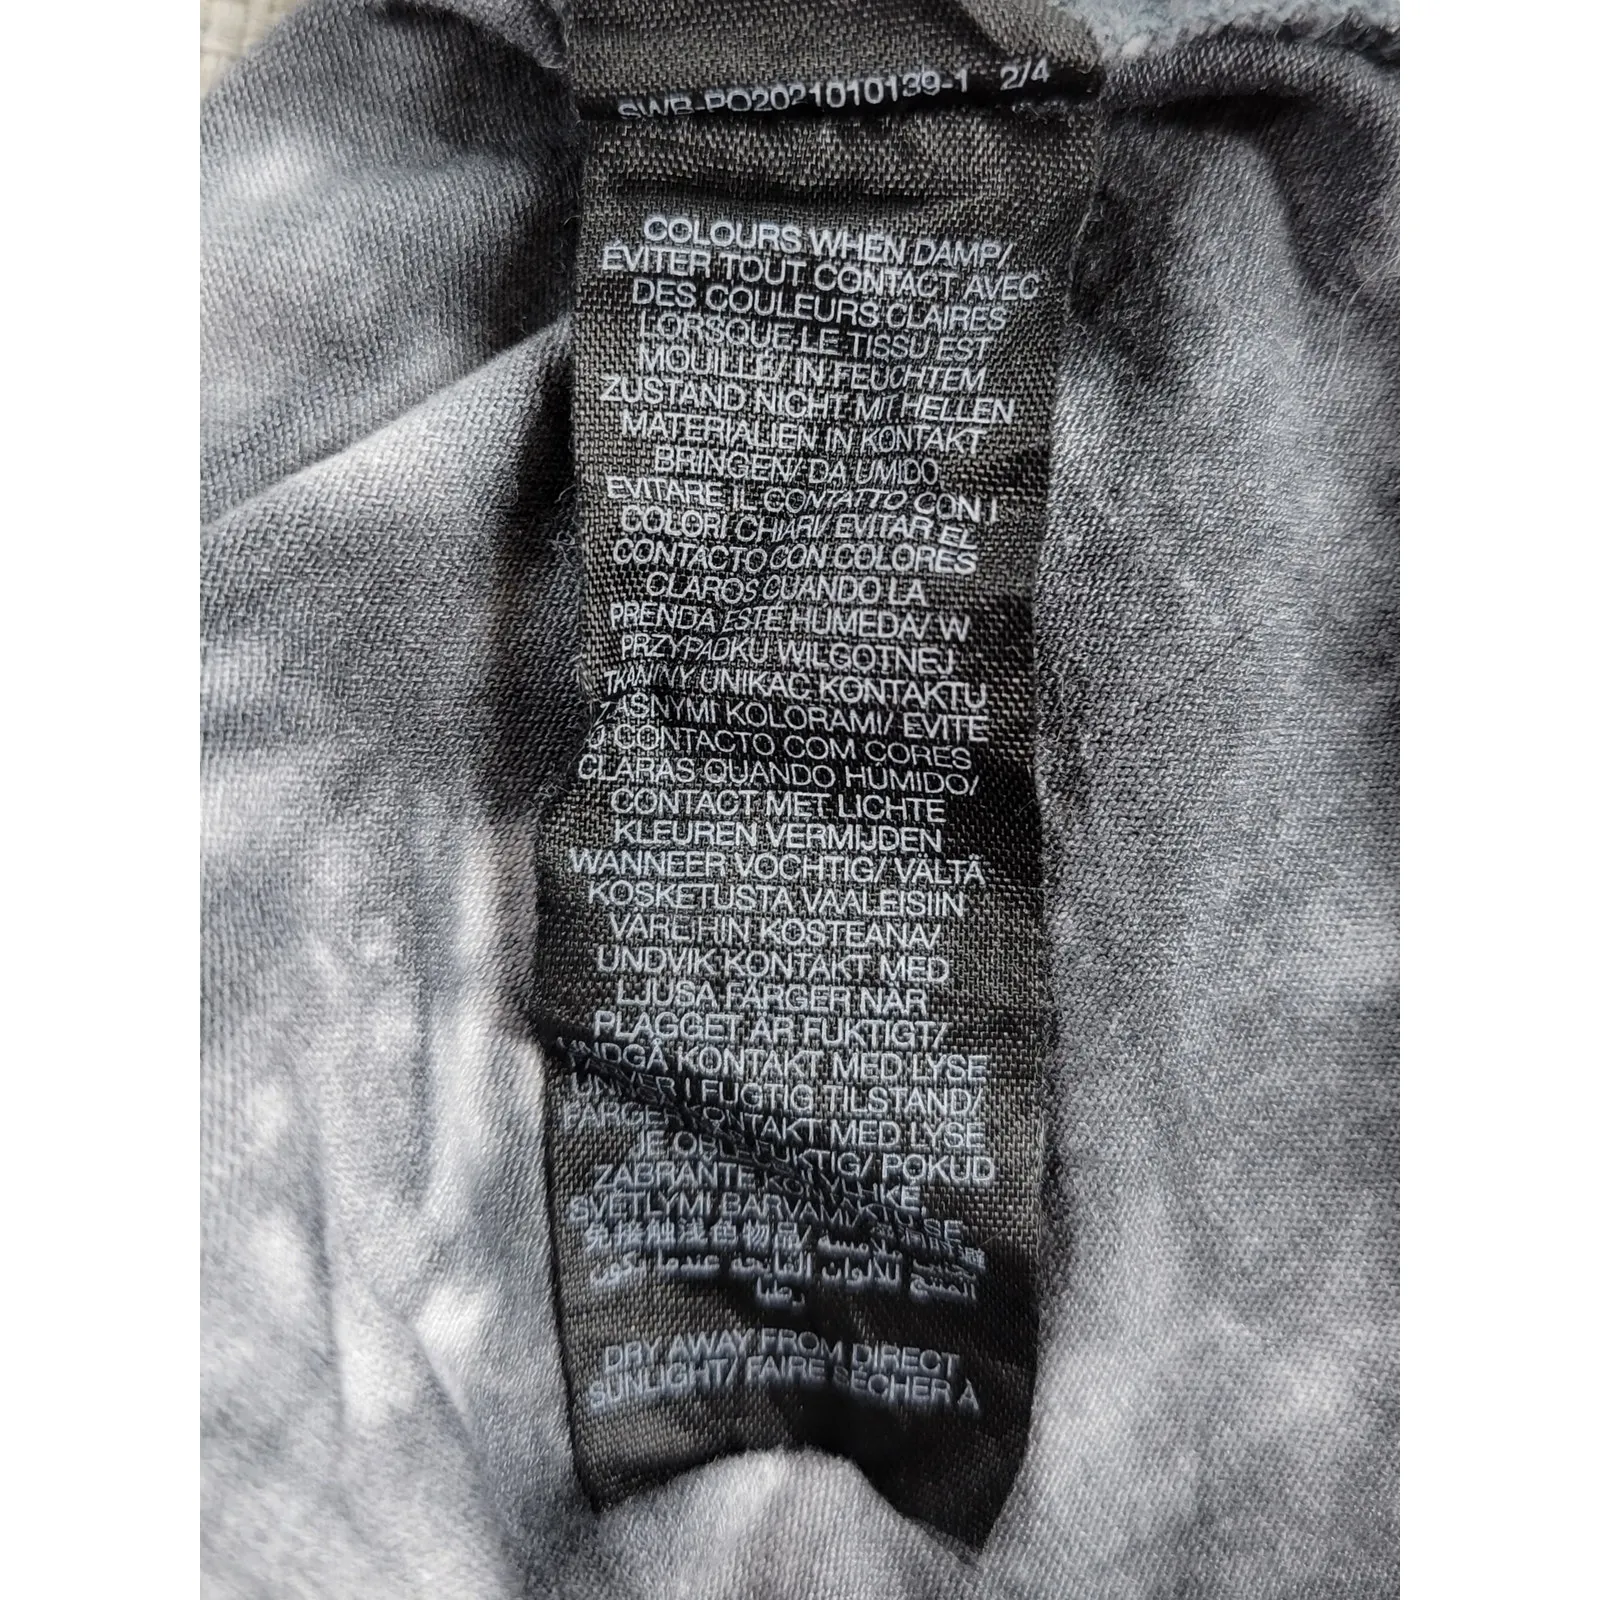 SWB-PO2021010139-1 2/4
COLOURS WHEN DAMP/
ÉVITER TOUT CONTACT AVEC
DES COULEURS CLAIRES
LORSQUE LE TISSU EST
MOUILLÉ/ IN FEUCHTEM
ZUSTAND NICHT MIT HELLEN
MATERIALIEN IN KONTAKT
BRINGEN/ DA UMIDO
EVITARE IL CONTATTO CON I
COLORI CHIARI/ EVITAR EL
CONTACTO CON COLORES
CLAROS CUANDO LA
PRENDA ESTE HUMEDA/ W
PRZYPADKU WILGOTNEJ
TKANINY UNIKAC KONTAKTU
ZASNYMI KOLORAMI/ EVITE
O CONTACTO COM CORES
CLARAS QUANDO HUMIDO/
CONTACT MET LICHTE
KLEUREN VERMIJDEN
WANNEER VOCHTIG/ VÄLTÄ
KOSKETUSTA VAALEISIIN
VÄREIHIN KOSTEANA/
UNDVIK KONTAKT MED
LJUSA FÄRGER NÄR
PLAGGET ÄR FUKTIGT/
UNDGÅ KONTAKT MED LYSE
I FUGTIG TILSTAND/
KONTAKT MED LYSE
FUKTIG/ POKUD
ZABRANTE
SVETLYMI BARVAMI/
物品/ ملامسة
النسيج للألوان الفاتحة عندما يكون
رطبا
DRY AWAY FROM DIRECT
SUNLIGHT/ FAIRE SÉCHER À